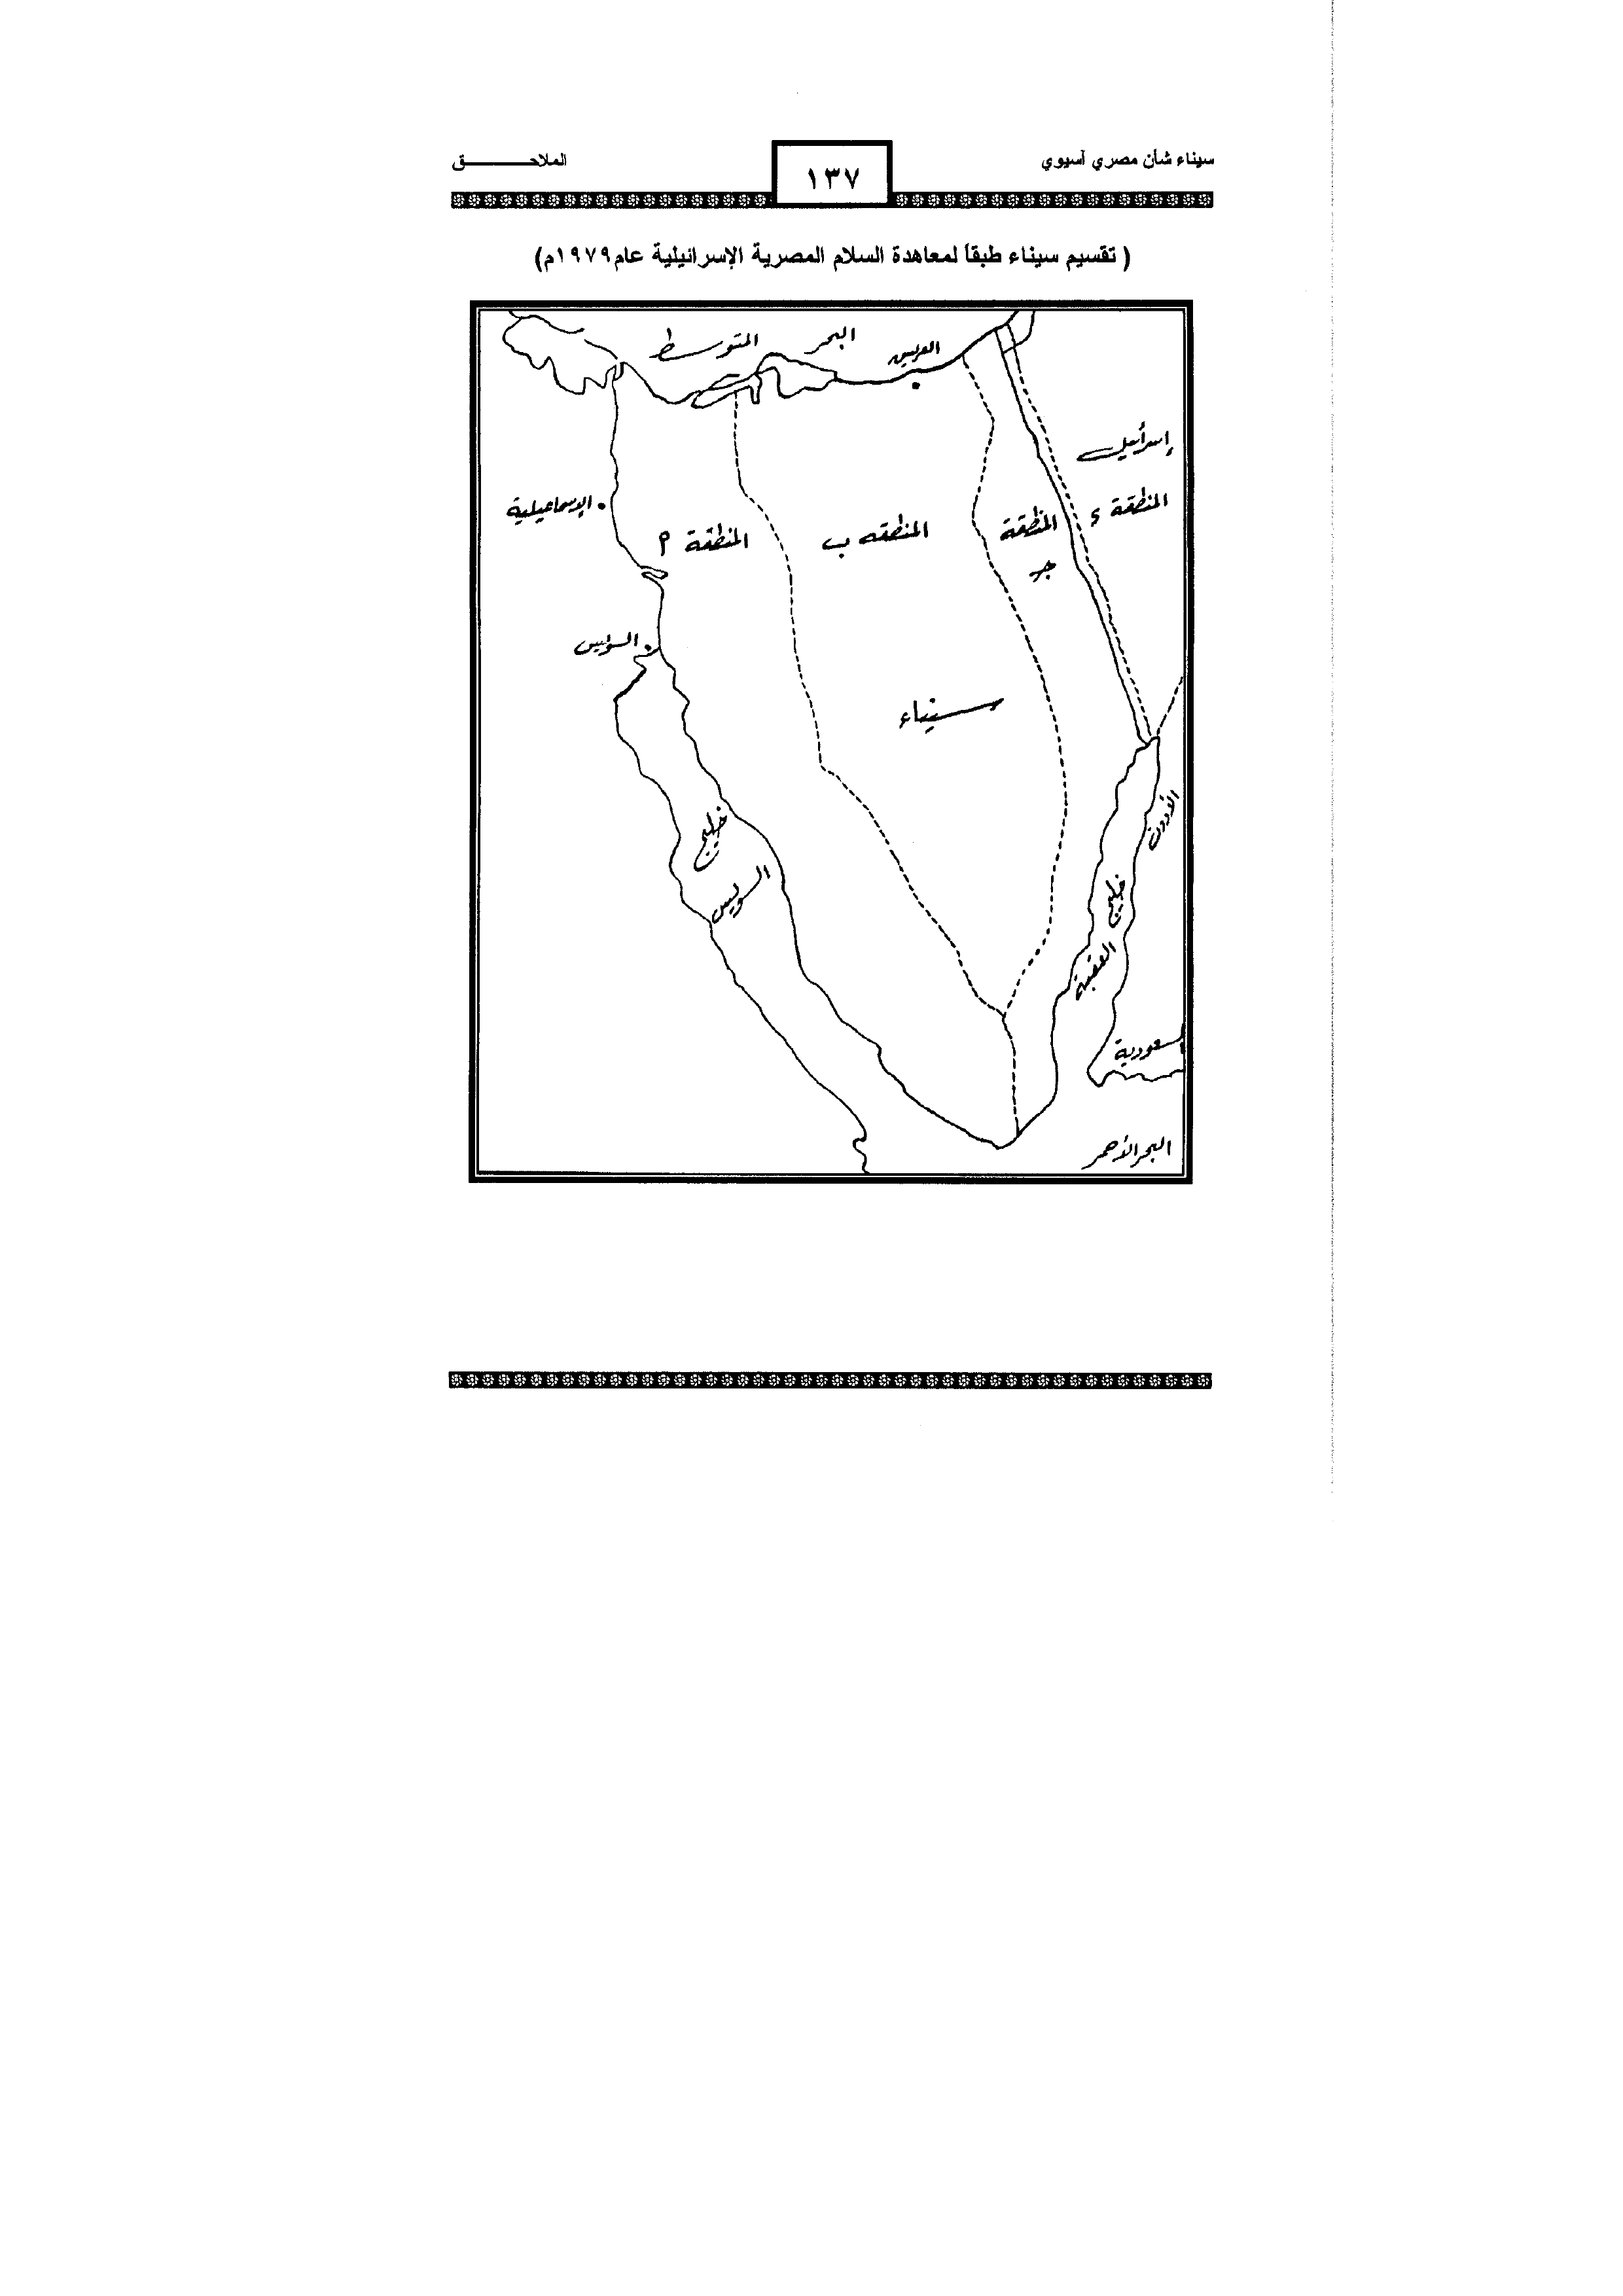 سيناء شأن مصري آسيوي
١٣٧
الملاحـــــــــــق
( تقسيم سيناء طبقاً لمعاهدة السلام المصرية الإسرائيلية عام ١٩٧٩م)
البحر
المتوسط
العريش
إسرائيل
المنطقة ء
المنطقة
جـ
المنطقه ب
المنطقة م
الإسماعيلية
السويس
سيناء
خليج
السويس
الأردن
خليج
العقبة
السعودية
البحر الأحمر